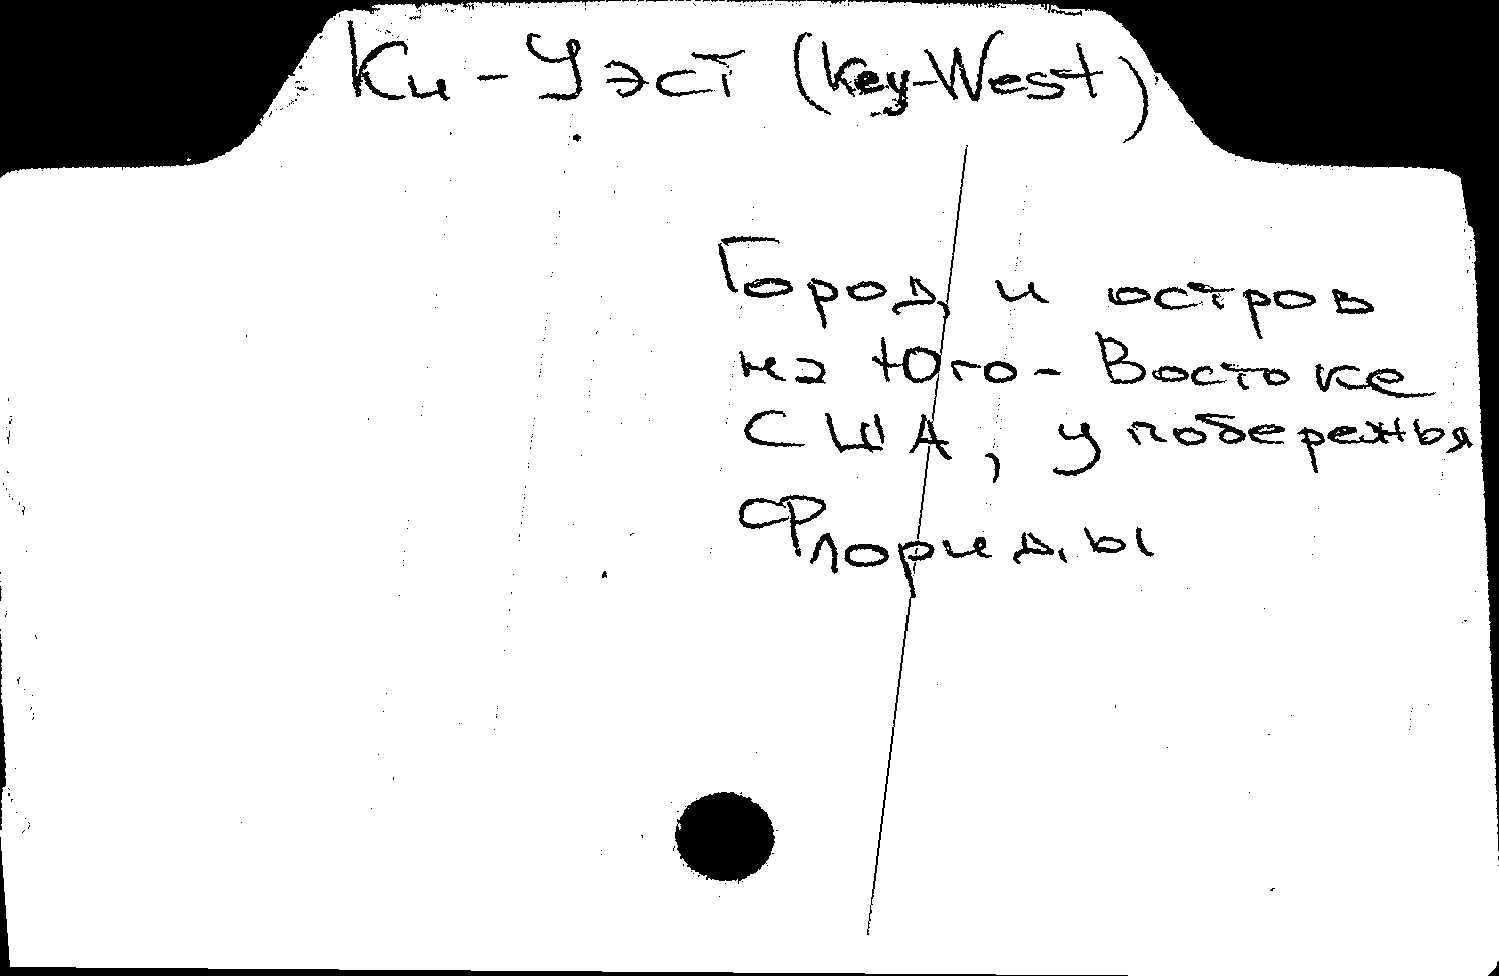 Ки-Уэст (Key-West)
Город и остров
на Юго-Востоке
США, у побережья
Флориды